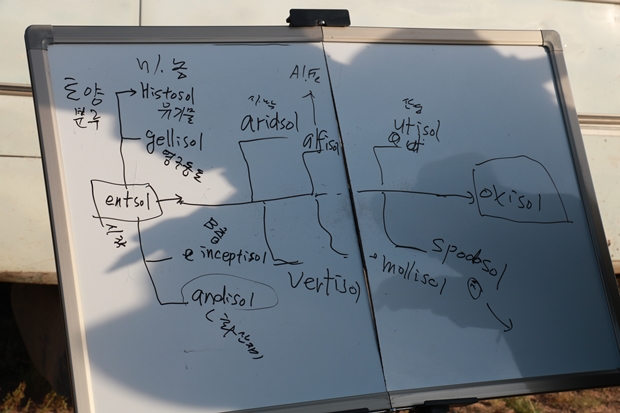 토양
분류
Histosol
유기물
gellisol
영구동토
entsol
e inceptisol
andisol
(화산재)
aridsol
Al.Fe
alfisol
Vertisol
utisol
mollisol
spodsol
oxisol